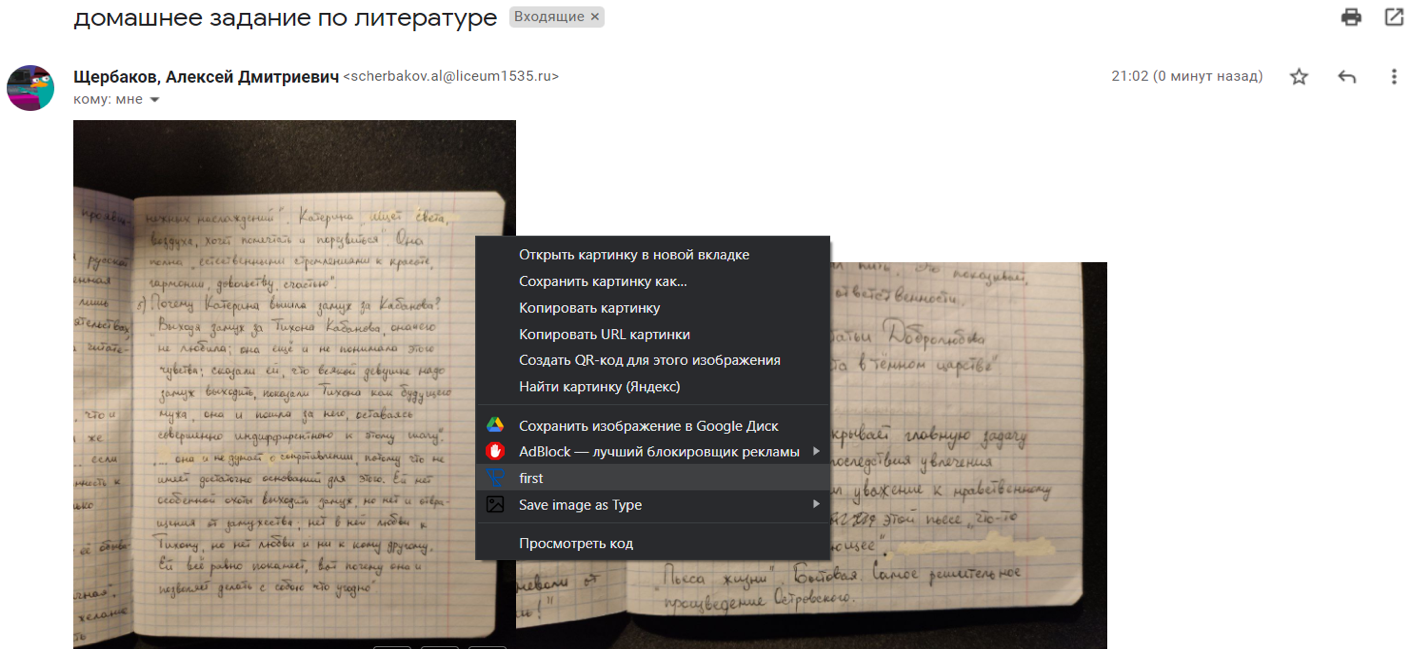 домашнее задание по литературе
Входящие ×
Щербаков, Алексей Дмитриевич <scherbakov.al@liceum1535.ru>
21:02 (0 минут назад)
кому: мне
нужных наслаждений". Катерина „ищет света,
воздуха, хочет помечтать и порезвиться". Она
полна „естественными стремлениями к красоте,
гармонии, довольству, счастью".
Почему Катерина вышла замуж за Кабанова?
„Выходя замуж за Тихона Кабанова, она его
не любила; она ещё и не понимала этого
чувства; сказали ей, что всякой девушке надо
замуж выходить, показали Тихона как будущего
мужа, она и пошла за него, оставаясь
совершенно индифферентною к этому шагу".
„... она и не думает о сопротивлении, потому что не
имеет достаточно оснований для этого. Ей нет
особенной охоты выходить замуж, но нет и отвра-
щения от замужества; нет в ней любви к
Тихону, но нет любви и ни к кому другому.
Ей всё равно покамест, вот почему она и
позволяет делать с собою что угодно"
русской
лишь
что и
же
если
желание
Открыть картинку в новой вкладке
Сохранить картинку как...
Копировать картинку
Копировать URL картинки
Создать QR-код для этого изображения
Найти картинку (Яндекс)
Сохранить изображение в Google Диск
AdBlock — лучший блокировщик рекламы
first
Save image as Type
Просмотреть код
пить. Это показывает,
ответственности.
Добролюбова
в тёмном царстве"
крывает главную задачу
последствия увлечения
уважение к нравственному
этой пьесе „что-то
ющее".
„Пьеса жизни". Бытовая. Самое решительное
произведение Островского.